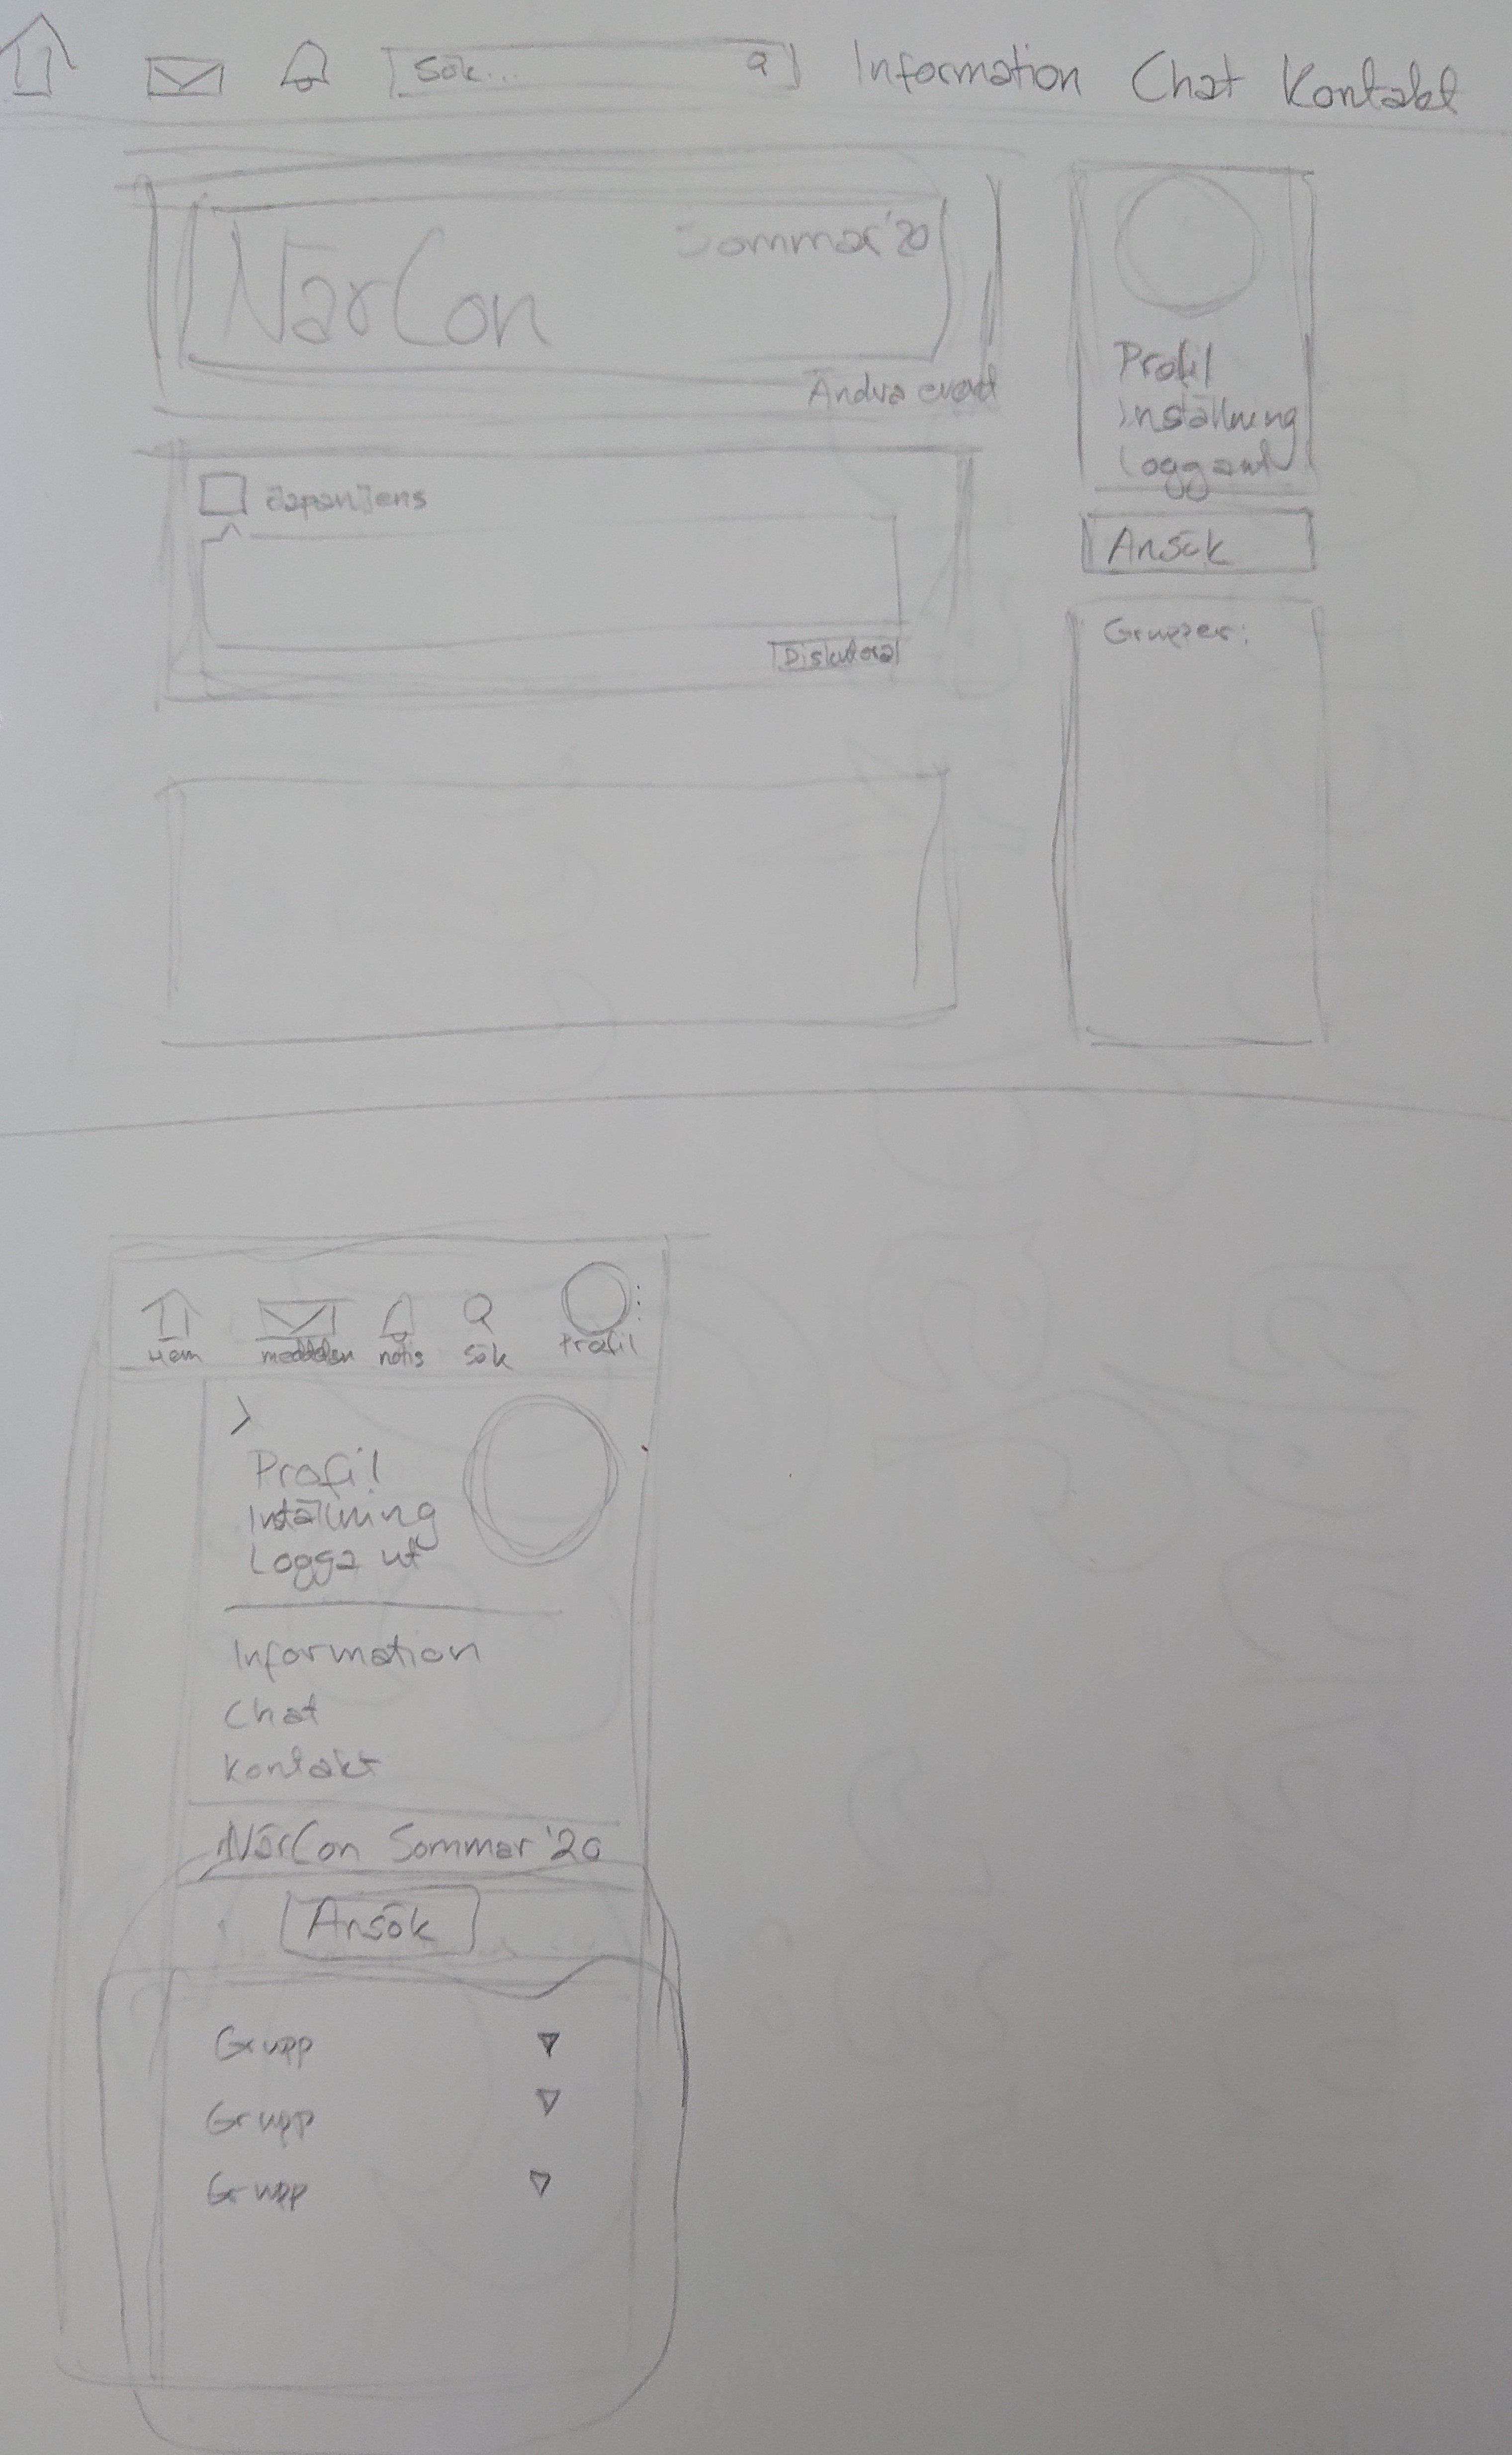 Sök...
Information Chat Kontakt
NärCon
Sommar '20
Andra event
Profil
Inställning
Logga ut
JapanJens
Ansök
Diskutera
Grupper:
Hem
notis
Sök
Profil
Profil
Inställning
Logga ut
Information
Chat
Kontakt
NärCon Sommar '20
Ansök
Grupp
Grupp
Grupp